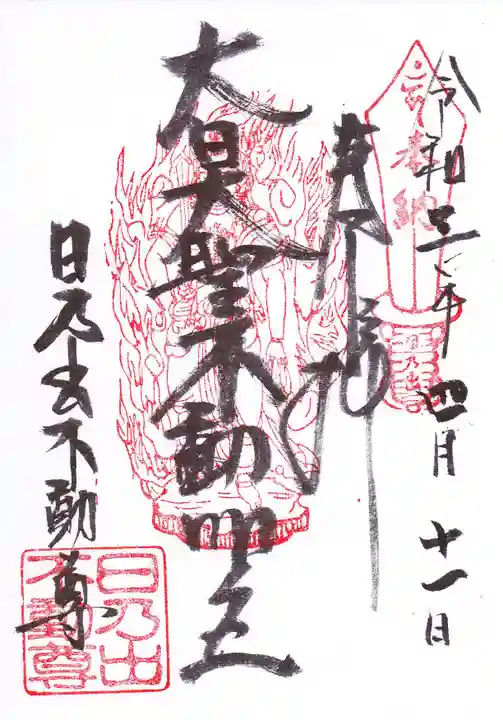 令和三年 四月 十一日
奉拝
大日大聖不動明王
日乃出不動尊
日乃出
不動尊